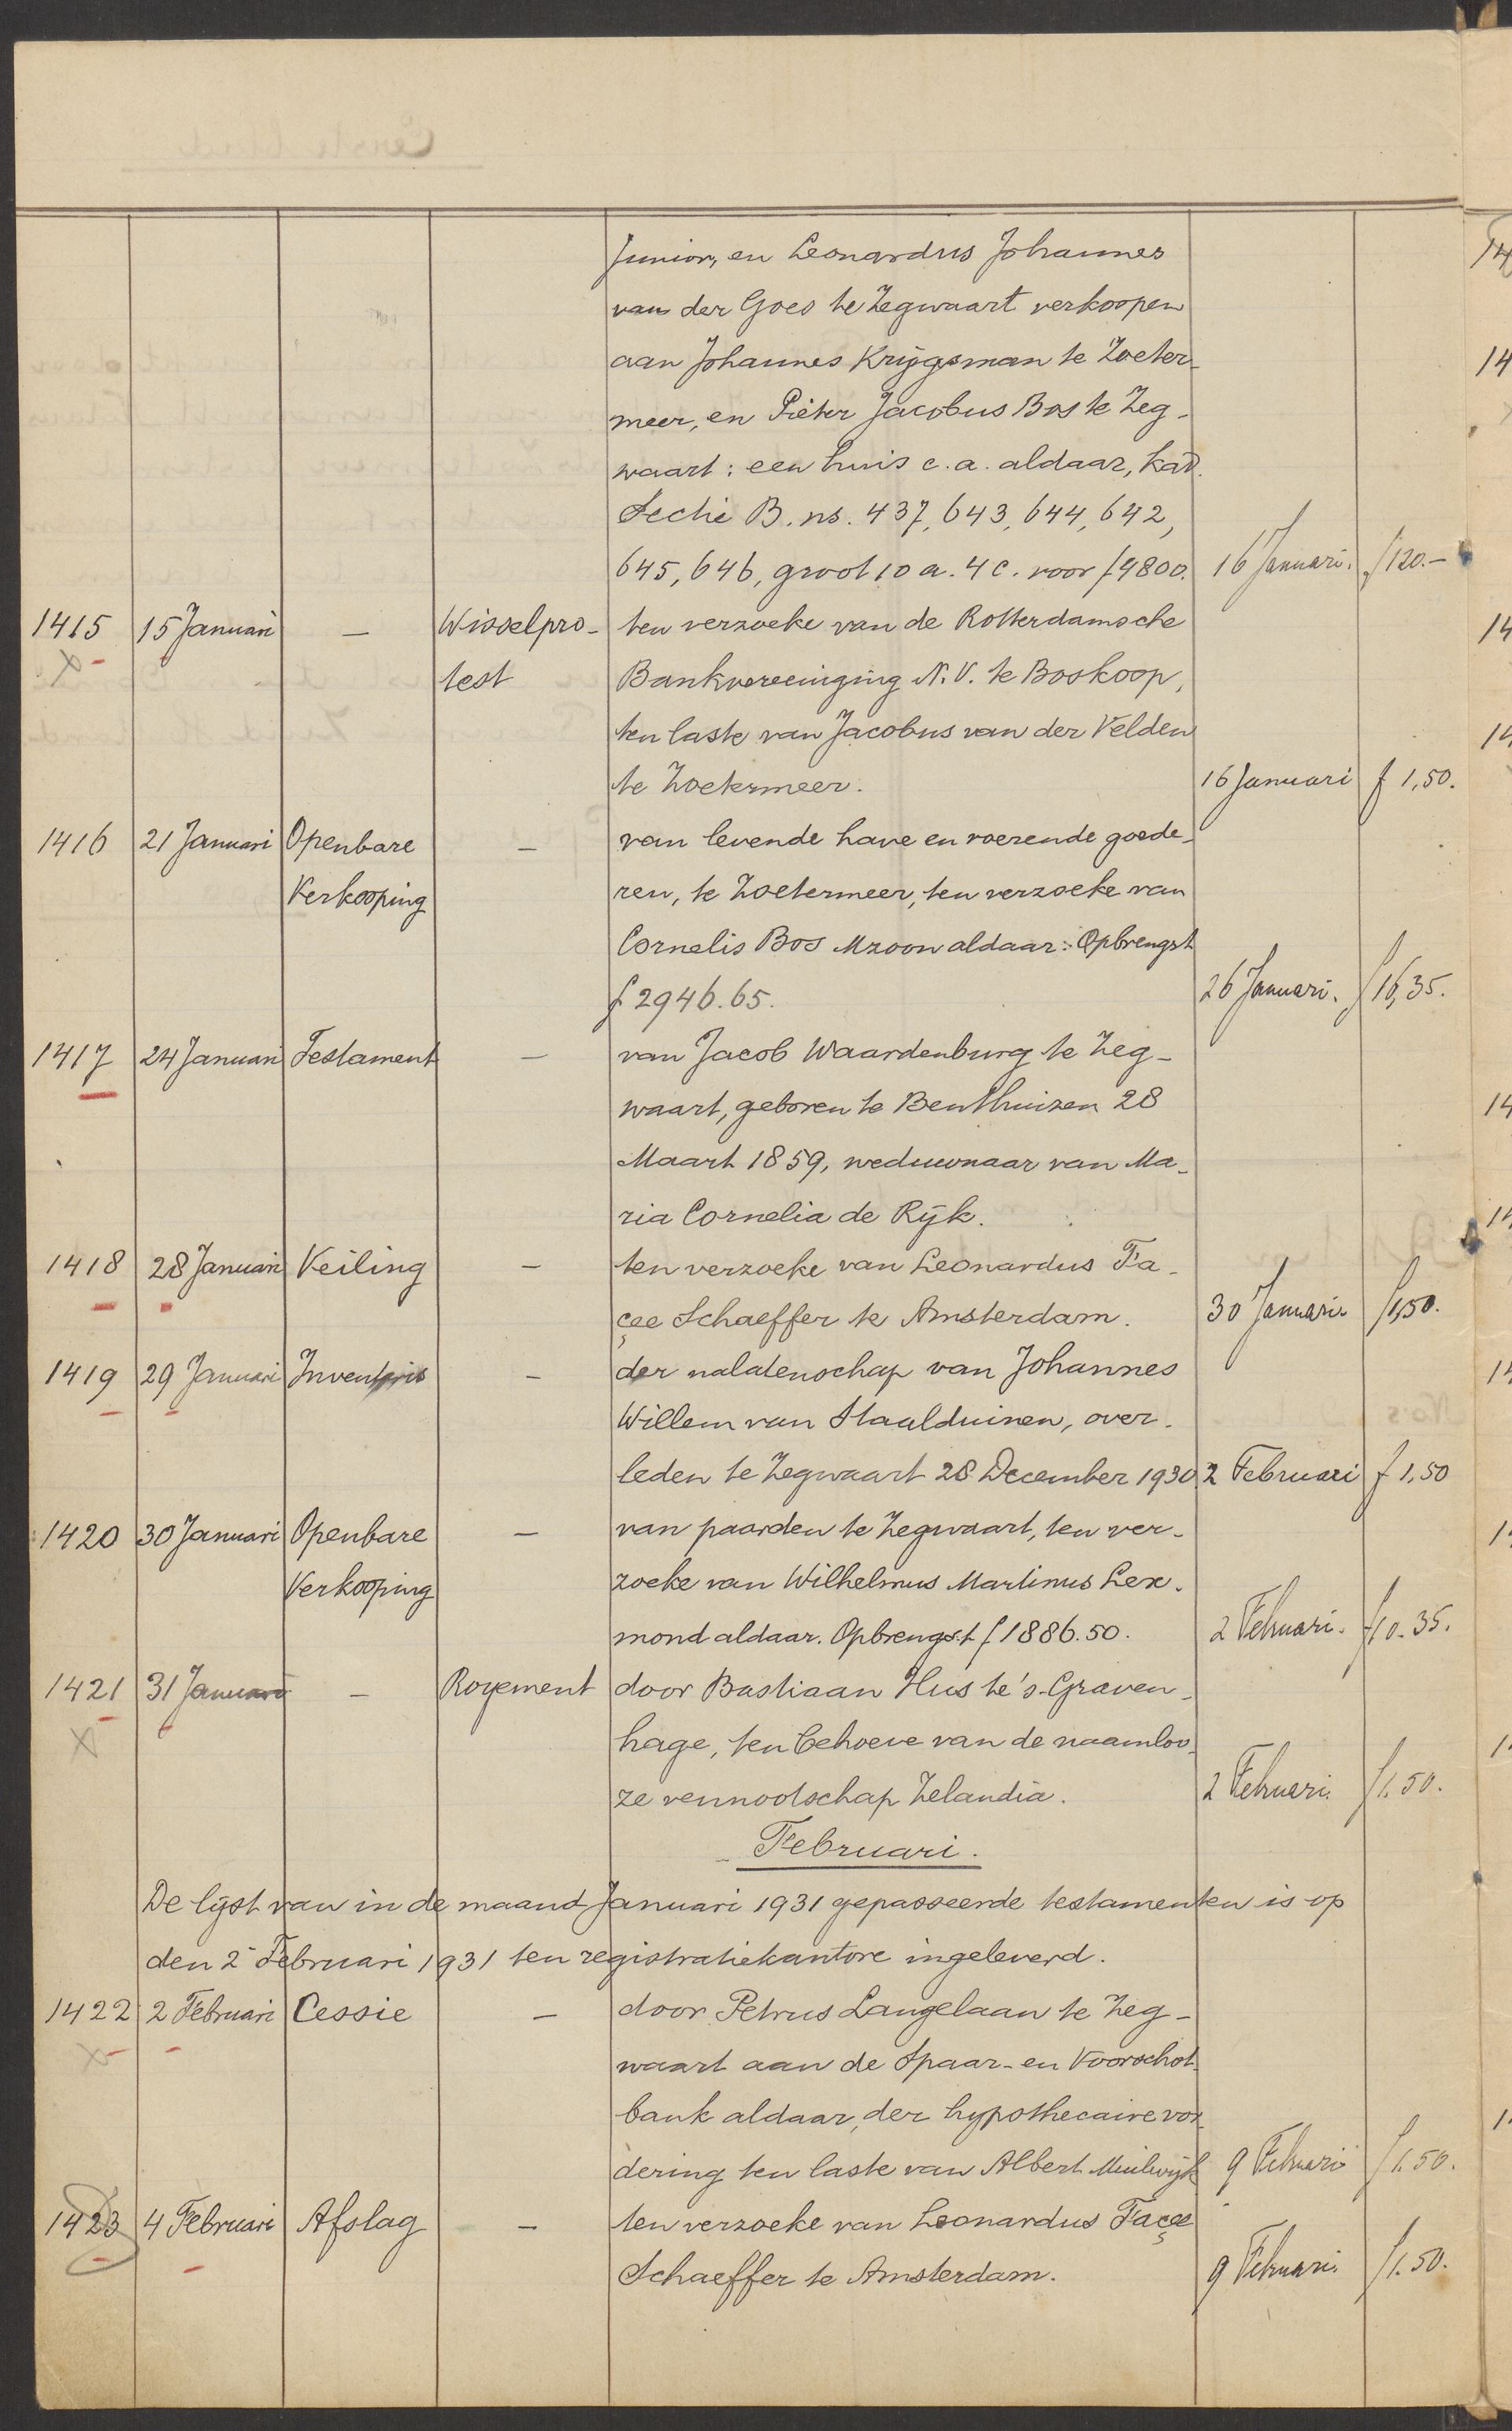 Junior, en Leonardus Johannes
van der Goes te Zegwaart verkoopen
aan Johannes Krijgsman te Zoeter-
meer, en Pieter Jacobus Bos te Zeg-
waart: een huis c.a. aldaar, kad.
Sectie B. ns. 437, 643, 644, 642,
645, 646, groot 10 a. 4 c. voor f 9800. 16 Januari. f 120.-
1415 15 Januari — Wisselpro- ten verzoeke van de Rotterdamsche
test Bankvereeniging N.V. te Boskoop,
ten laste van Jacobus van der Velden
te Zoetermeer. 16 Januari f 1,50.
1416 21 Januari Openbare — van levende have en roerende goede-
Verkooping ren, te Zoetermeer, ten verzoeke van
Cornelis Bos Mzoon aldaar: Opbrengst
f 2946.65. 26 Januari. f 16,35.
1417 24 Januari Testament — van Jacob Waardenburg te Zeg-
waart, geboren te Benthuizen 28
Maart 1859, weduwnaar van Ma-
ria Cornelia de Rijk.
1418 28 Januari Veiling — ten verzoeke van Leonardus Fa-
çee Schaeffer te Amsterdam. 30 Januari f 1,50.
1419 29 Januari Inventaris — der nalatenschap van Johannes
Willem van Staalduinen, over-
leden te Zegwaart 28 December 1930 2 Februari f 1,50
1420 30 Januari Openbare — van paarden te Zegwaart, ten ver-
Verkooping zoeke van Wilhelmus Martinus Lex-
mond aldaar. Opbrengst f 1886.50. 2 Februari. f 10.35.
1421 31 Januari — Royement door Bastiaan Hus te 's-Graven-
hage, ten behoeve van de naamloo-
ze vennootschap Zelandia. 2 Februari. f 1.50.
Februari.
De lijst van in de maand Januari 1931 gepasseerde testamenten is op
den 2 Februari 1931 ten registratiekantore ingeleverd.
1422 2 Februari Cessie — door Petrus Langelaan te Zeg-
waart aan de Spaar- en Voorschot-
bank aldaar, der hypothecaire vor-
dering ten laste van Albert Muilwijk 9 Februari f 1.50.
1423 4 Februari Afslag — ten verzoeke van Leonardus Façee
Schaeffer te Amsterdam. 9 Februari. f 1.50.